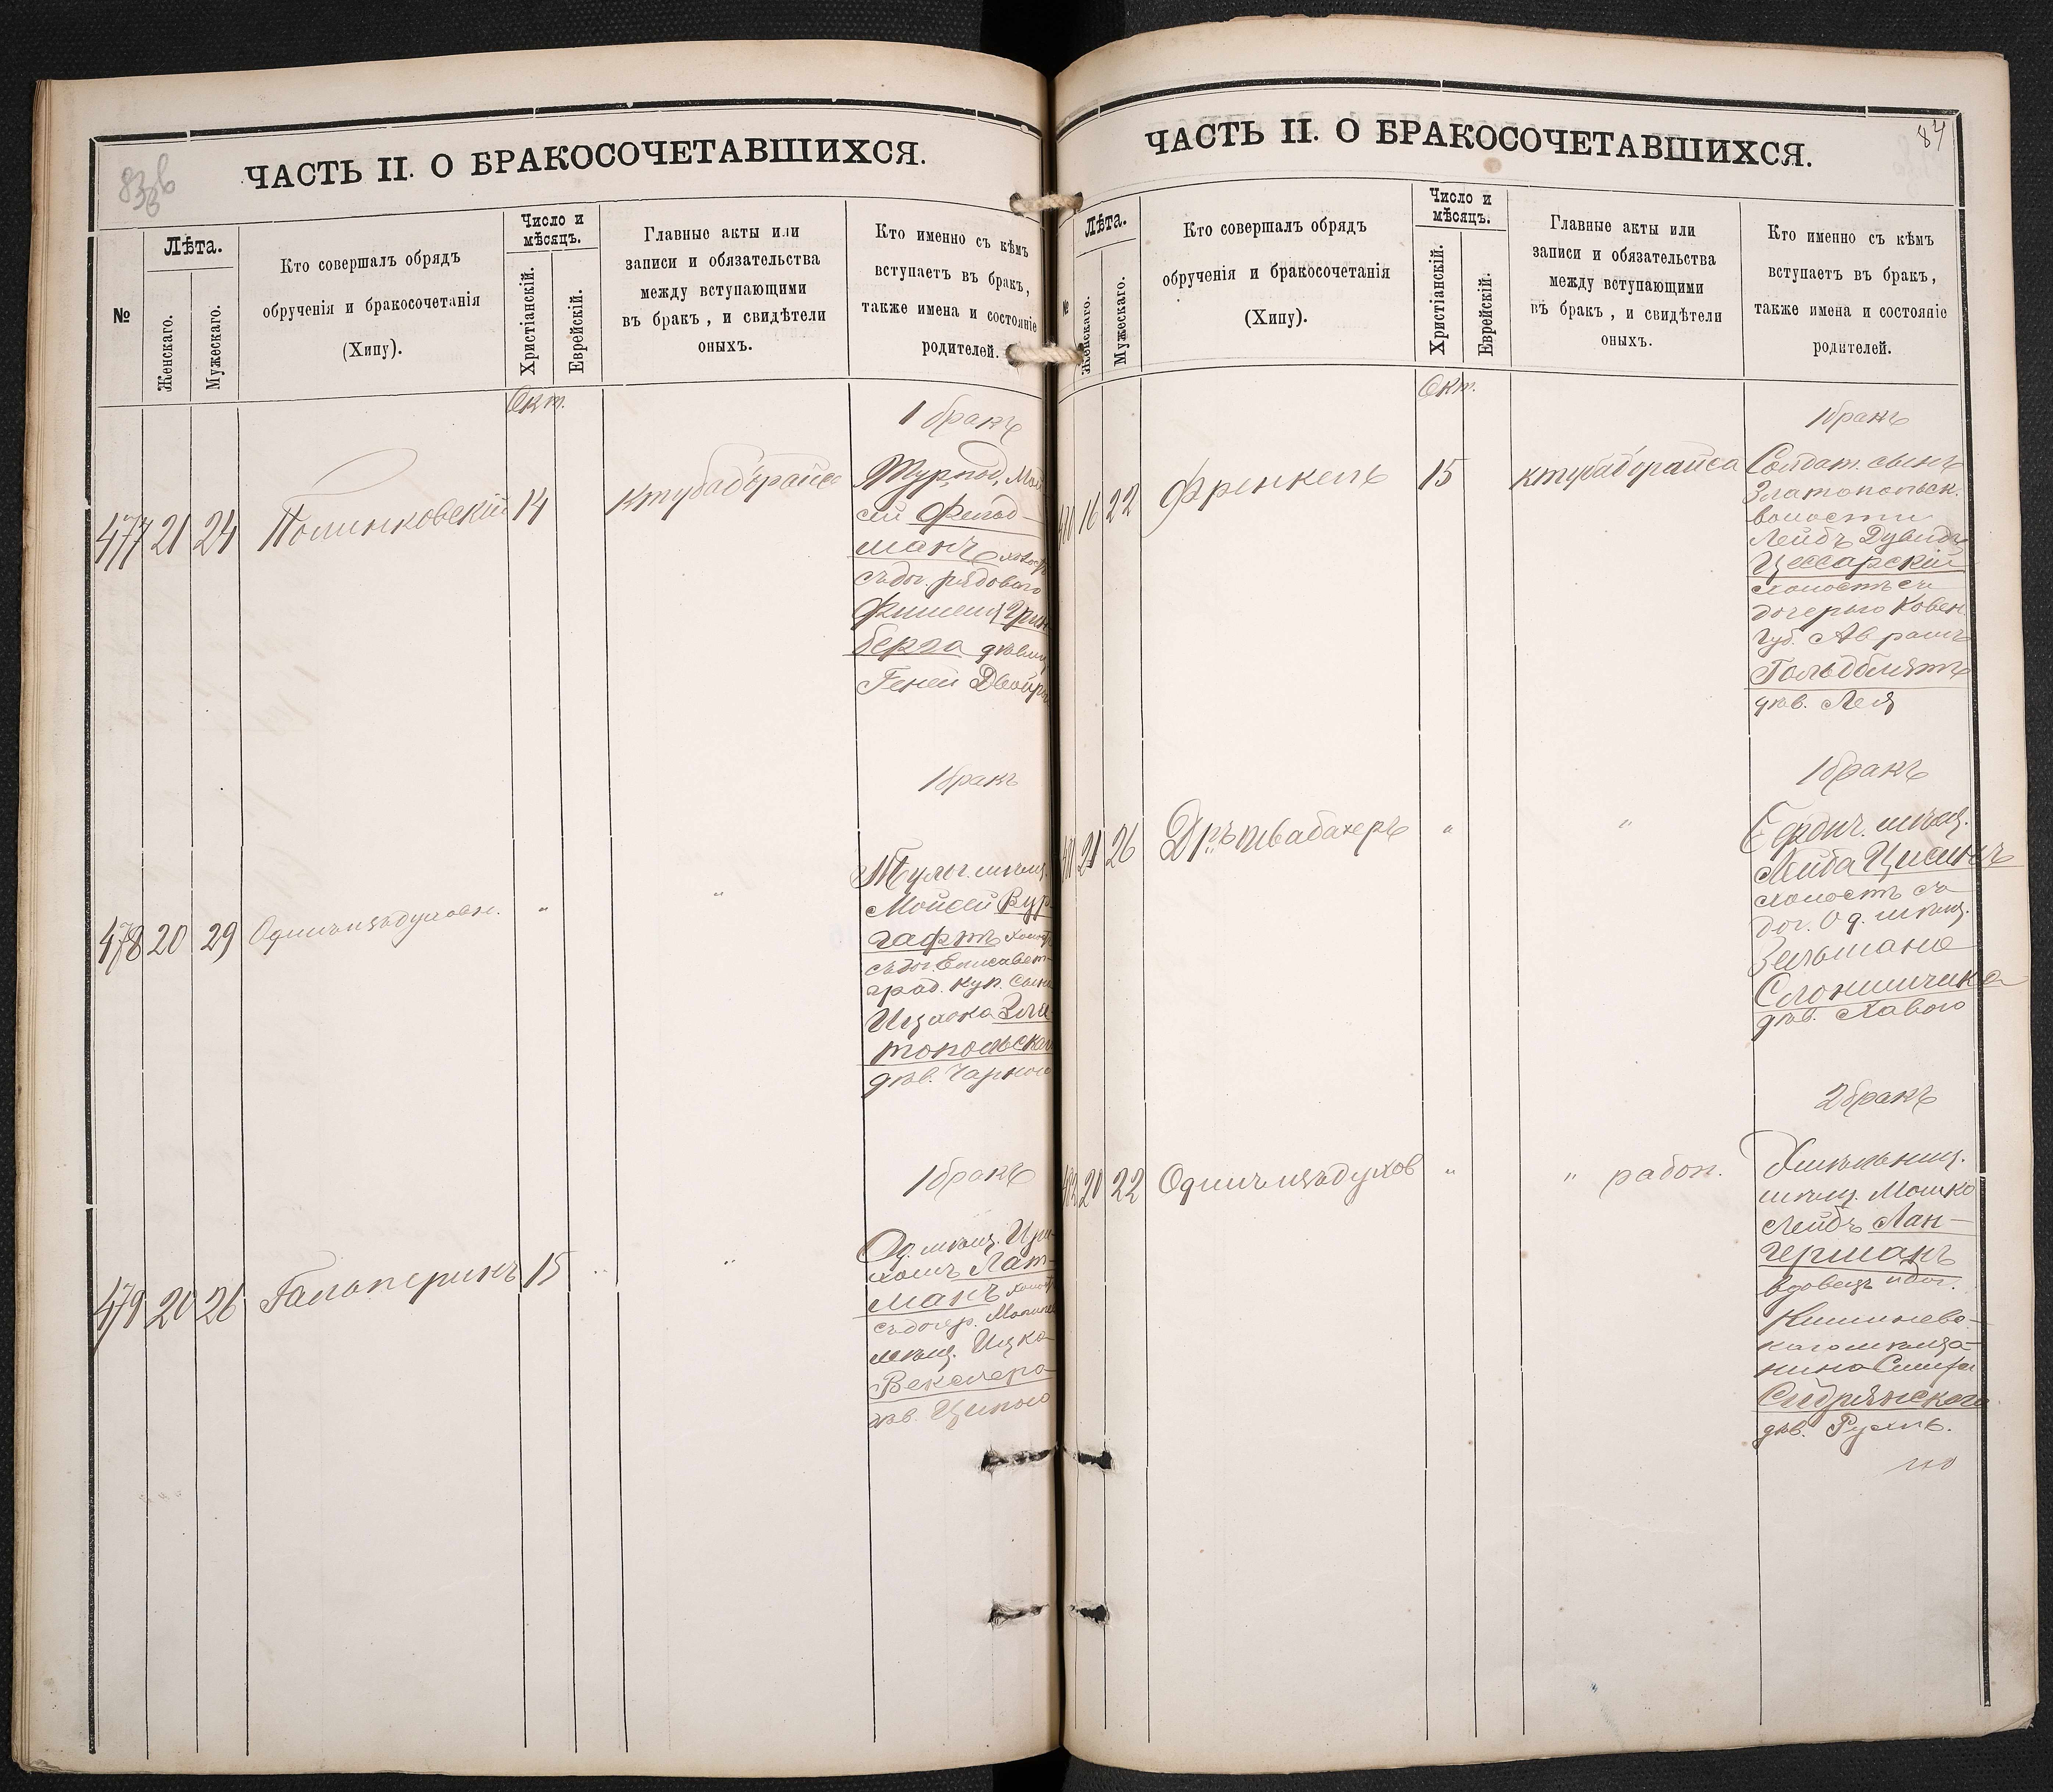 83 об
ЧАСТЬ II. О БРАКОСОЧЕТАВШИХСЯ.
№
Лѣта.
Женскаго.
Мужескаго.
Кто совершалъ обрядъ
обрученія и бракосочетанія
(Хипу).
Число и
мѣсяцъ.
Христіанскій.
Еврейскій.
Главные акты или
записи и обязательства
между вступающими
въ бракъ, и свидѣтели
оныхъ.
Кто именно съ кѣмъ
вступаетъ въ бракъ,
также имена и состояніе
родителей.
Окт.
477 21 24 Полинковскій 14
1 бракъ
Фельд-
манъ холост
съ доч. рядового
Фишеля Грин
берга дѣвиц
Геней Двойр
478 20 29 Одинъ изъ духовн. " "
1 бракъ
Тульч. мѣщ.
Мойсей Вур
гафтъ холост
съ доч. Елисавет-
град. куп. сына
Ицхока Зла-
топольска
дѣв. Чарною
479 20 26 Гальперинъ 15 " "
1 бракъ
Од. мѣщ.
Лат-
манъ холост
съ дочер.
мѣщ. Ицка
Векслера
дѣв. Ципою
84
ЧАСТЬ II. О БРАКОСОЧЕТАВШИХСЯ.
№
Лѣта.
Женскаго.
Мужескаго.
Кто совершалъ обрядъ
обрученія и бракосочетанія
(Хипу).
Число и
мѣсяцъ.
Христіанскій.
Еврейскій.
Главные акты или
записи и обязательства
между вступающими
въ бракъ, и свидѣтели
оныхъ.
Кто именно съ кѣмъ
вступаетъ въ бракъ,
также имена и состояніе
родителей.
Окт.
480 16 22 Френкель 15
1 бракъ
Солдат. сынъ
Златопольск.
волости
Лейбъ Дувидъ
Цессарскій
холостъ съ
дочерью Ковен.
губ. Аврама
Гольдблятъ
дѣв. Лея
481 21 26 Дръ Швабахеръ " "
1 бракъ
Бердич. мѣщ.
Лейба Цисинъ
холостъ съ
доч. Од. мѣщ.
Зельмана
Слонимчика
дѣв. Хавою
482 20 22 Одинъ изъ духов " "
2 бракъ
Хмѣльниц.
мѣщ. Мошко
Лейбъ Лан-
германъ
вдовецъ съ доч.
Кишинев-
каго мѣща-
нина
дѣв. Рухль.